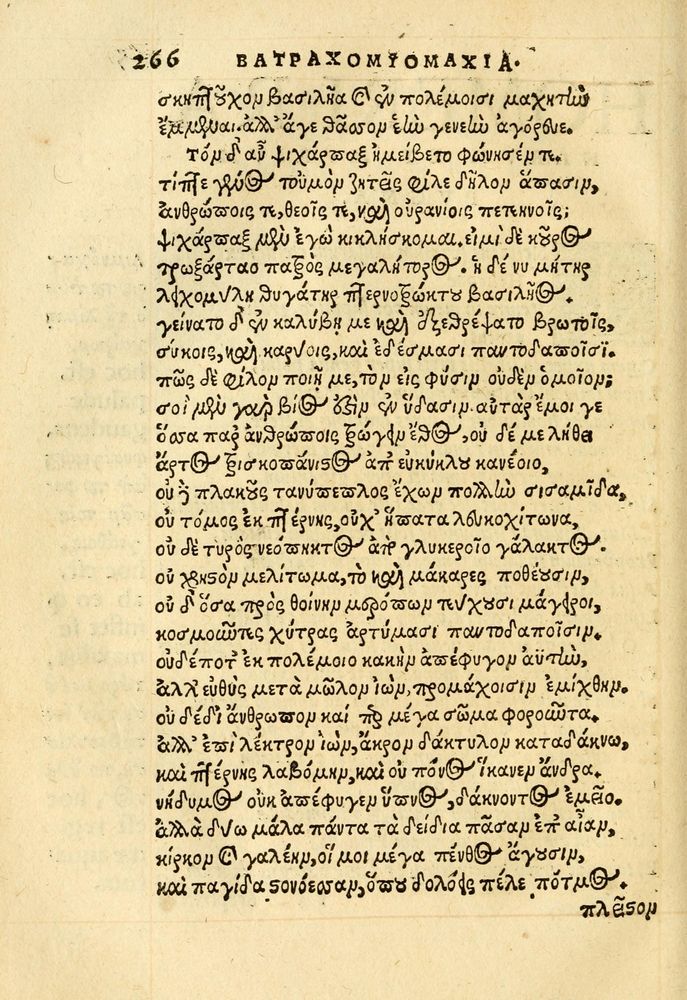 266 ΒΑΤΡΑΧΟΜΥΟΜΑΧΙΑ.
σκηπτοῦχον βασιλῆα καὶ ἐν πολέμοισι μαχητὴν
ἔμμεναι. ἀλλ' ἄγε θᾶσσον ἑὴν γενεὴν ἀγόρευε.
Τὸν δ' αὖ ψιχάρπαξ ἠμείβετο φώνησέν τε.
τίπτε γένος τοὐμὸν ζητεῖς φίλε δῆλον ἅπασιν,
ἀνθρώποις τε, θεοῖς τε, καὶ οὐρανίοις πετεηνοῖς;
ψιχάρπαξ μὲν ἐγὼ κικλήσκομαι. εἰμὶ δὲ κοῦρος
τρωξάρταο πατρὸς μεγαλήτορος. ἡ δέ νυ μήτηρ
λειχομύλη θυγάτηρ πτερνοτρώκτου βασιλῆος.
γείνατο δ' ἐν καλύβῃ με καὶ ἐξεθρέψατο βρωτοῖς,
σύκοις, καὶ καρύοις, καὶ ἐδέσμασι παντοδαποῖσι.
πῶς δὲ φίλον ποιῇ με, τὸν εἰς φύσιν οὐδὲν ὁμοῖον;
σοὶ μὲν γὰρ βίος ἐστὶν ἐν ὕδασιν. αὐτὰρ ἔμοι γε
ὅσσα παρ' ἀνθρώποις τρώγειν ἔθος, οὐ δέ με λήθει
ἄρτος τρισκοπάνιστος ἀπ' εὐκύκλου κανέοιο,
οὐ δὲ πλακοῦς τανύπεπλος ἔχων πολλὴν σισαμῖδα,
οὐ τόμος ἐκ πτέρνης, οὐχ' ἥπατα λευκοχίτωνα,
οὐ δὲ τυρὸς νεόπηκτος ἀπὸ γλυκεροῖο γάλακτος.
οὐ χρηστὸν μελίτωμα, τὸ καὶ μάκαρες ποθέουσιν,
οὐ δ' ὅσα πρὸς θοίνην μερόπων τεύχουσι μάγειροι,
κοσμοῶντες χύτρας ἀρτύμασι παντοδαποῖσιν.
οὐδέποτ' ἐκ πολέμοιο κακὴν ἀπέφυγον ἀϋτὴν,
ἀλλ' εὐθὺς μετὰ μῶλον ἰὼν, προμάχοισιν ἐμίχθην.
οὐ δέδι' ἄνθρωπον καί περ μέγα σῶμα φοροῶντα.
ἀλλ' ἐπὶ λέκτρον ἰὼν, ἄκρον δάκτυλον καταδάκνω,
καὶ πτέρνης λαβόμην, καὶ οὐ πόνος ἵκανεν ἄνδρα.
νήδυμος οὐκ ἀπέφυγεν ὕπνος, δάκνοντος ἐμεῖο.
ἀλλὰ δύω μάλα πάντα τὰ δείδια πᾶσαν ἐπ' αἶαν,
κίρκον καὶ γαλέην, οἵ μοι μέγα πένθος ἄγουσιν,
καὶ παγίδα στονόεσσαν, ὅπου δολόεις πέλε πότμος.
πλεῖστον